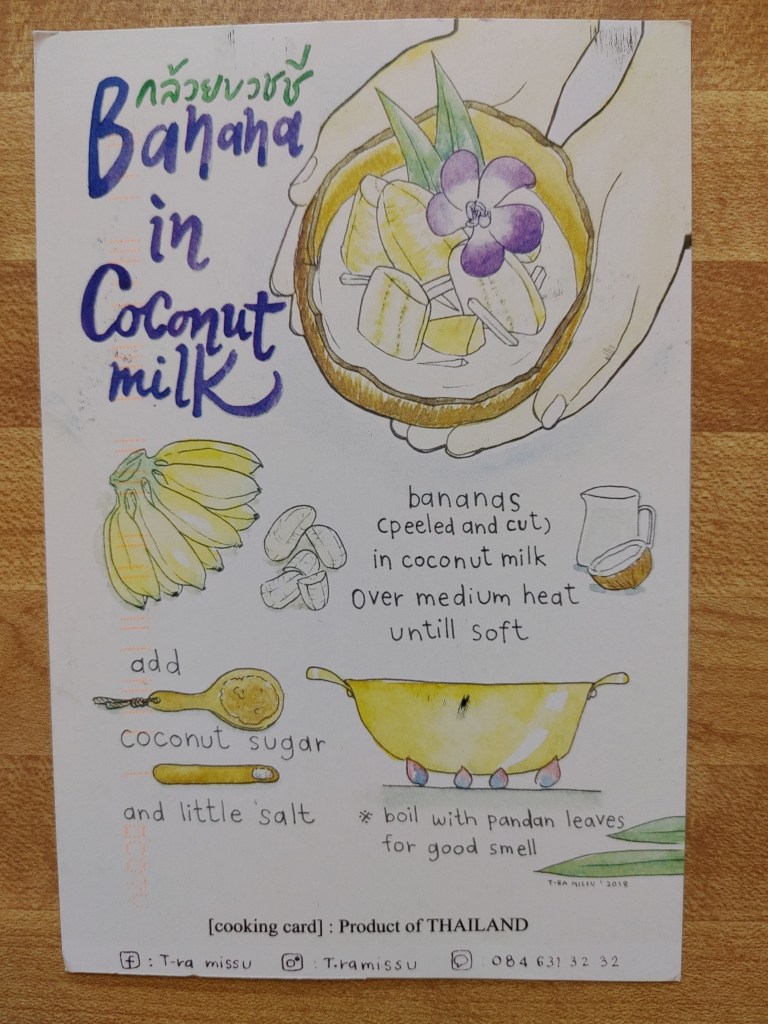 กล้วยบวชชี
Banana
in
Coconut
milk
bananas
(peeled and cut)
in coconut milk
Over medium heat
untill soft
add
coconut sugar
and little salt
※ boil with pandan leaves
for good smell
T-RA MISSU '2018
[cooking card] : Product of THAILAND
: T-ra missu : T.ramissu : 084 631 32 32